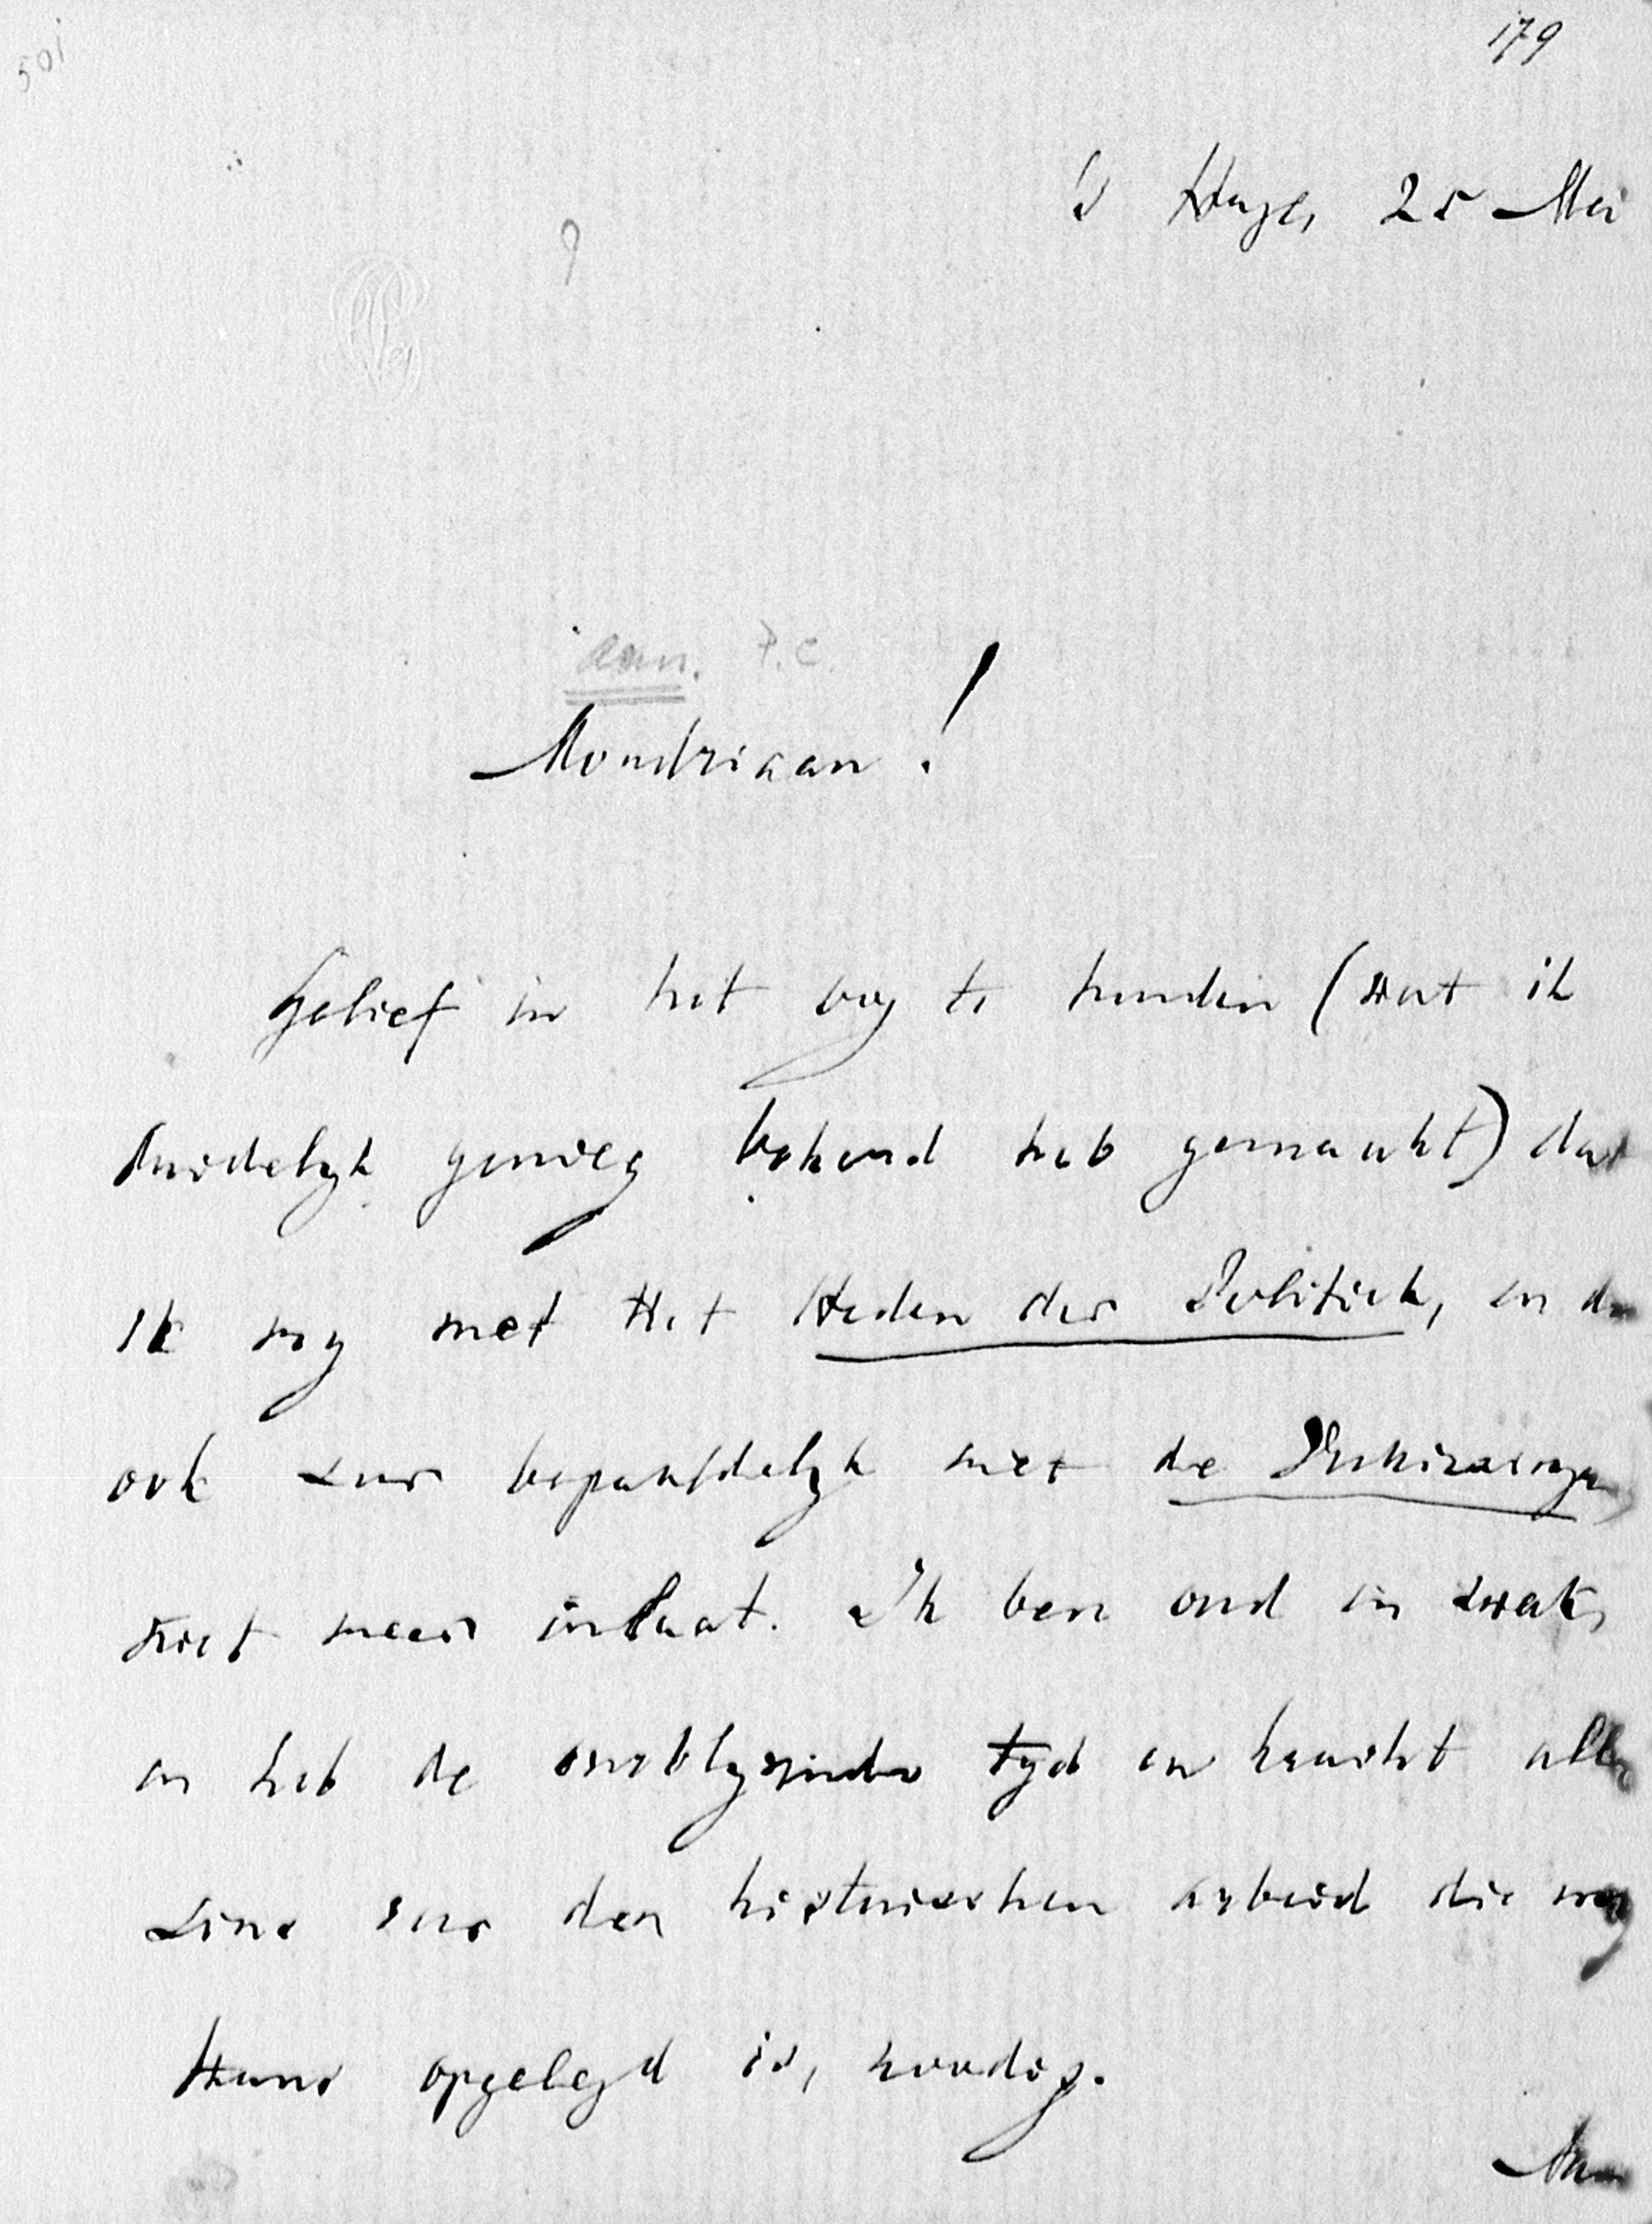 501
179
's Hage, 25 Mei
9
aan. P.C.
Mondriaan!
Gelief in het oog te houden (wat ik
duidelyk genoeg bekend heb gemaakt) dat
ik my met Het Heden der Politiek, en dus
ook zeer bepaaldelyk met de Verkiezingen,
niet meer inlaat. Ik ben oud en zwak,
en heb de overblyvende tyd en kracht alle
voor den historischen arbeid die my
thans opgelegd is, noodig.